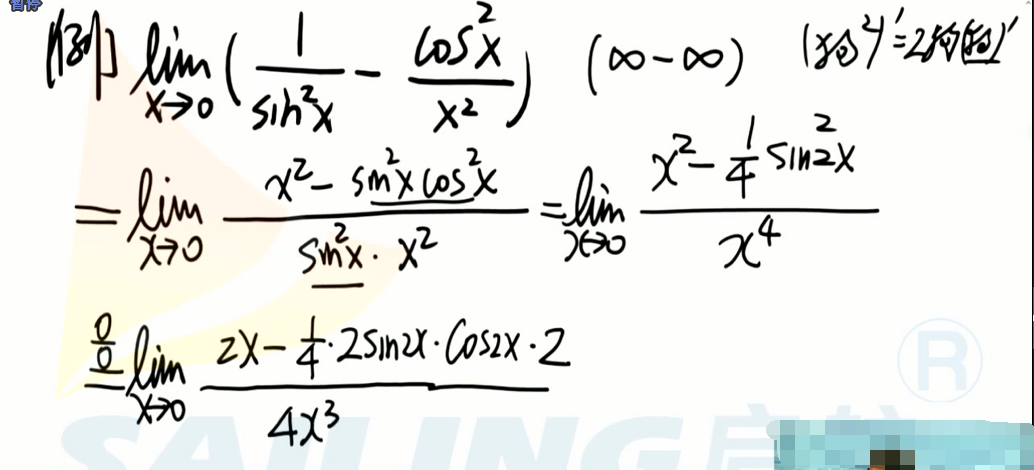 暂停
[例] lim x→0 ( 1/sin²x − cos²x/x² ) (∞−∞)
= lim x→0 (x² − sin²x cos²x)/(sin²x · x²) = lim x→0 (x² − 1/4 sin²2x)/x⁴
0/0 = lim x→0 (2x − 1/4 · 2sin2x · cos2x · 2)/(4x³)
SAILING
®